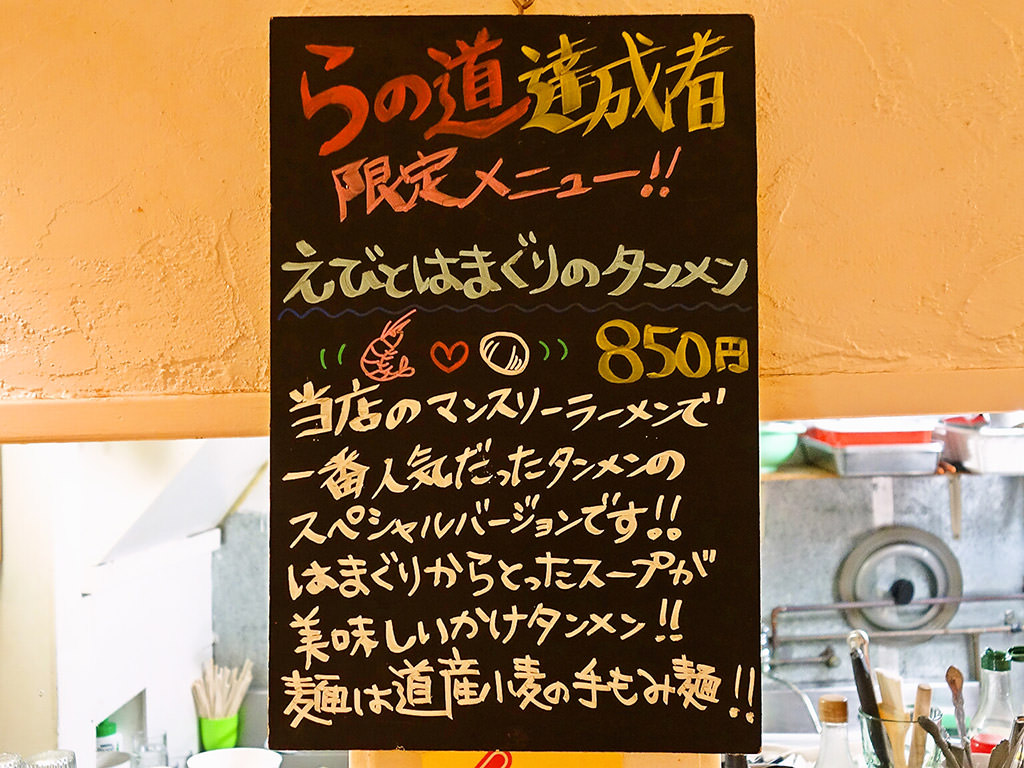 らの道達成者
限定メニュー!!
えびとはまぐりのタンメン
850円
当店のマンスリーラーメンで
一番人気だったタンメンの
スペシャルバージョンです!!
はまぐりからとったスープが
美味しいかけタンメン!!
麺は道産小麦の手もみ麺!!